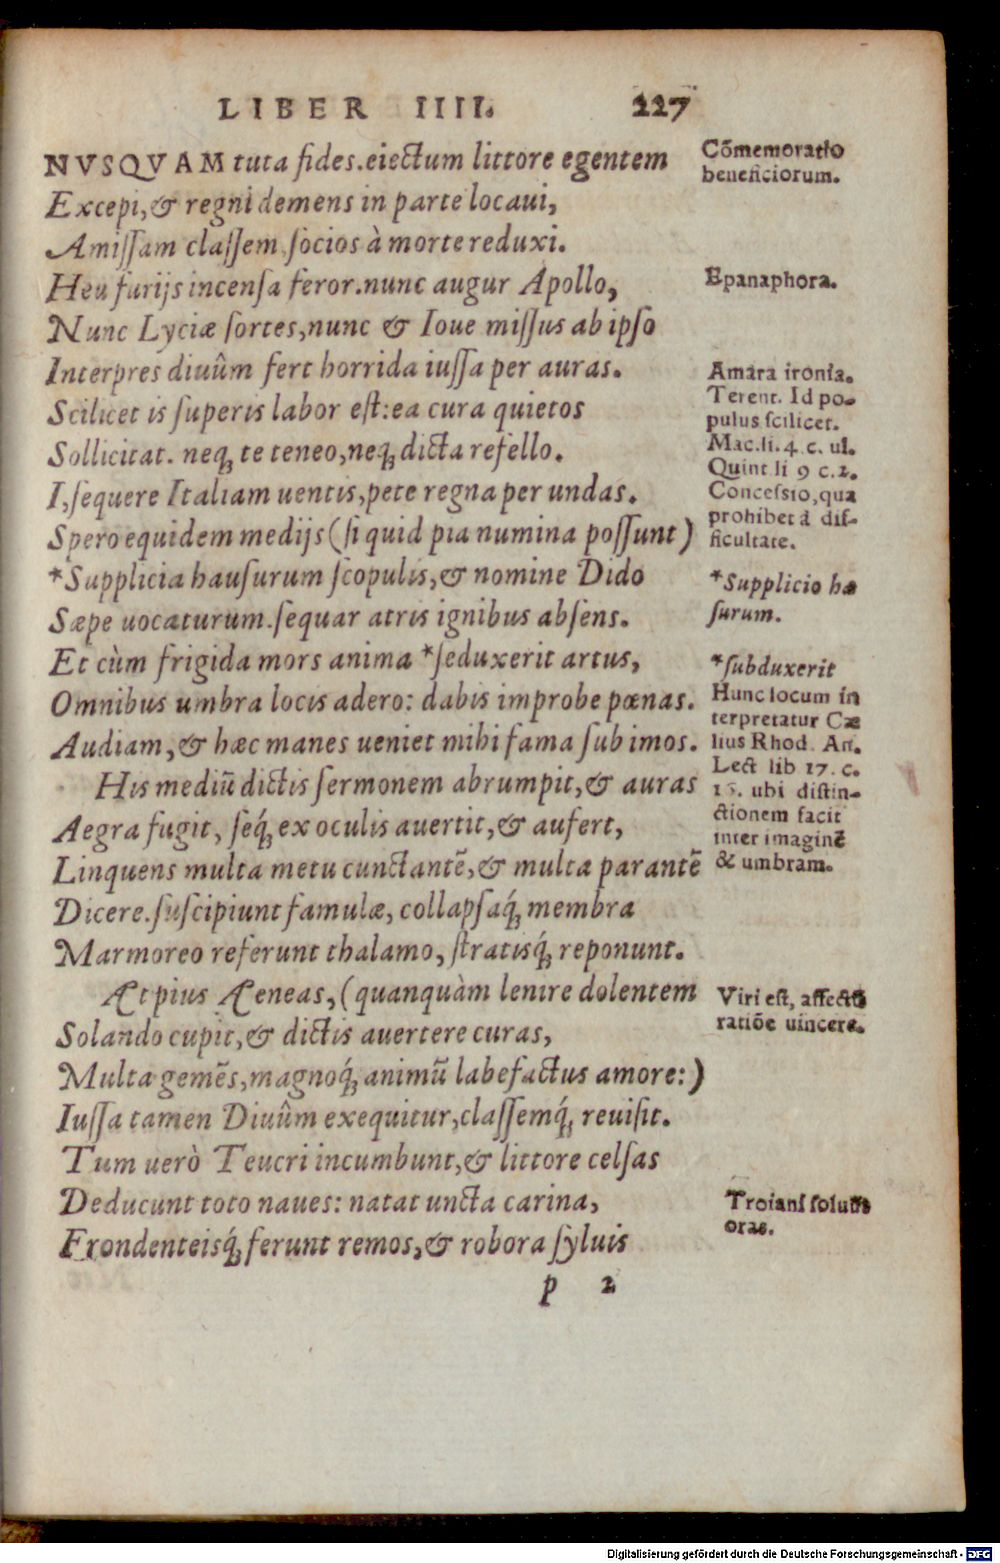 LIBER IIII. 227
NVSQVAM tuta fides. eiectum littore egentem
Excepi, & regni demens in parte locaui,
Amissam classem, socios à morte reduxi.
Heu furijs incensa feror. nunc augur Apollo,
Nunc Lyciæ sortes, nunc & Ioue missus ab ipso
Interpres diuûm fert horrida iussa per auras.
Scilicet is superis labor est: ea cura quietos
Sollicitat. neq; te teneo, neq; dicta refello.
I, sequere Italiam uentis, pete regna per undas.
Spero equidem medijs (si quid pia numina possunt)
*Supplicia hausurum scopulis, & nomine Dido
Sæpe uocaturum. sequar atris ignibus absens.
Et cùm frigida mors anima *seduxerit artus,
Omnibus umbra locis adero: dabis improbe pœnas.
Audiam, & hæc manes ueniet mihi fama sub imos.
His mediũ dictis sermonem abrumpit, & auras
Aegra fugit, seq́; ex oculis auertit, & aufert,
Linquens multa metu cunctantẽ, & multa parantẽ
Dicere. suscipiunt famulæ, collapsaq́; membra
Marmoreo referunt thalamo, stratisq́; reponunt.
Æt pius Æeneas, (quanquàm lenire dolentem
Solando cupit, & dictis auertere curas,
Multa gemẽs, magnoq́; animũ labefactus amore:)
Iussa tamen Diuûm exequitur, classemq́; reuisit.
Tum uerò Teucri incumbunt, & littore celsas
Deducunt toto naues: natat uncta carina,
Frondenteisq́; ferunt remos, & robora syluis
p 2
Cõmemoratio
beneficiorum.
Epanaphora.
Amara ironia.
Terent. Id po-
pulus scilicet.
Mac. li. 4. c. ul.
Quint li 9 c. 2.
Concessio, qua
prohibet à dif-
ficultate.
*Supplicio hæ
surum.
*subduxerit
Hunc locum in
terpretatur Cæ
lius Rhod. Ant.
Lect lib 17. c.
15. ubi distin-
ctionem facit
inter imaginẽ
& umbram.
Viri est, affectũ
ratiõe uincere.
Troiani soluũt
oras.
Digitalisierung gefördert durch die Deutsche Forschungsgemeinschaft - DFG